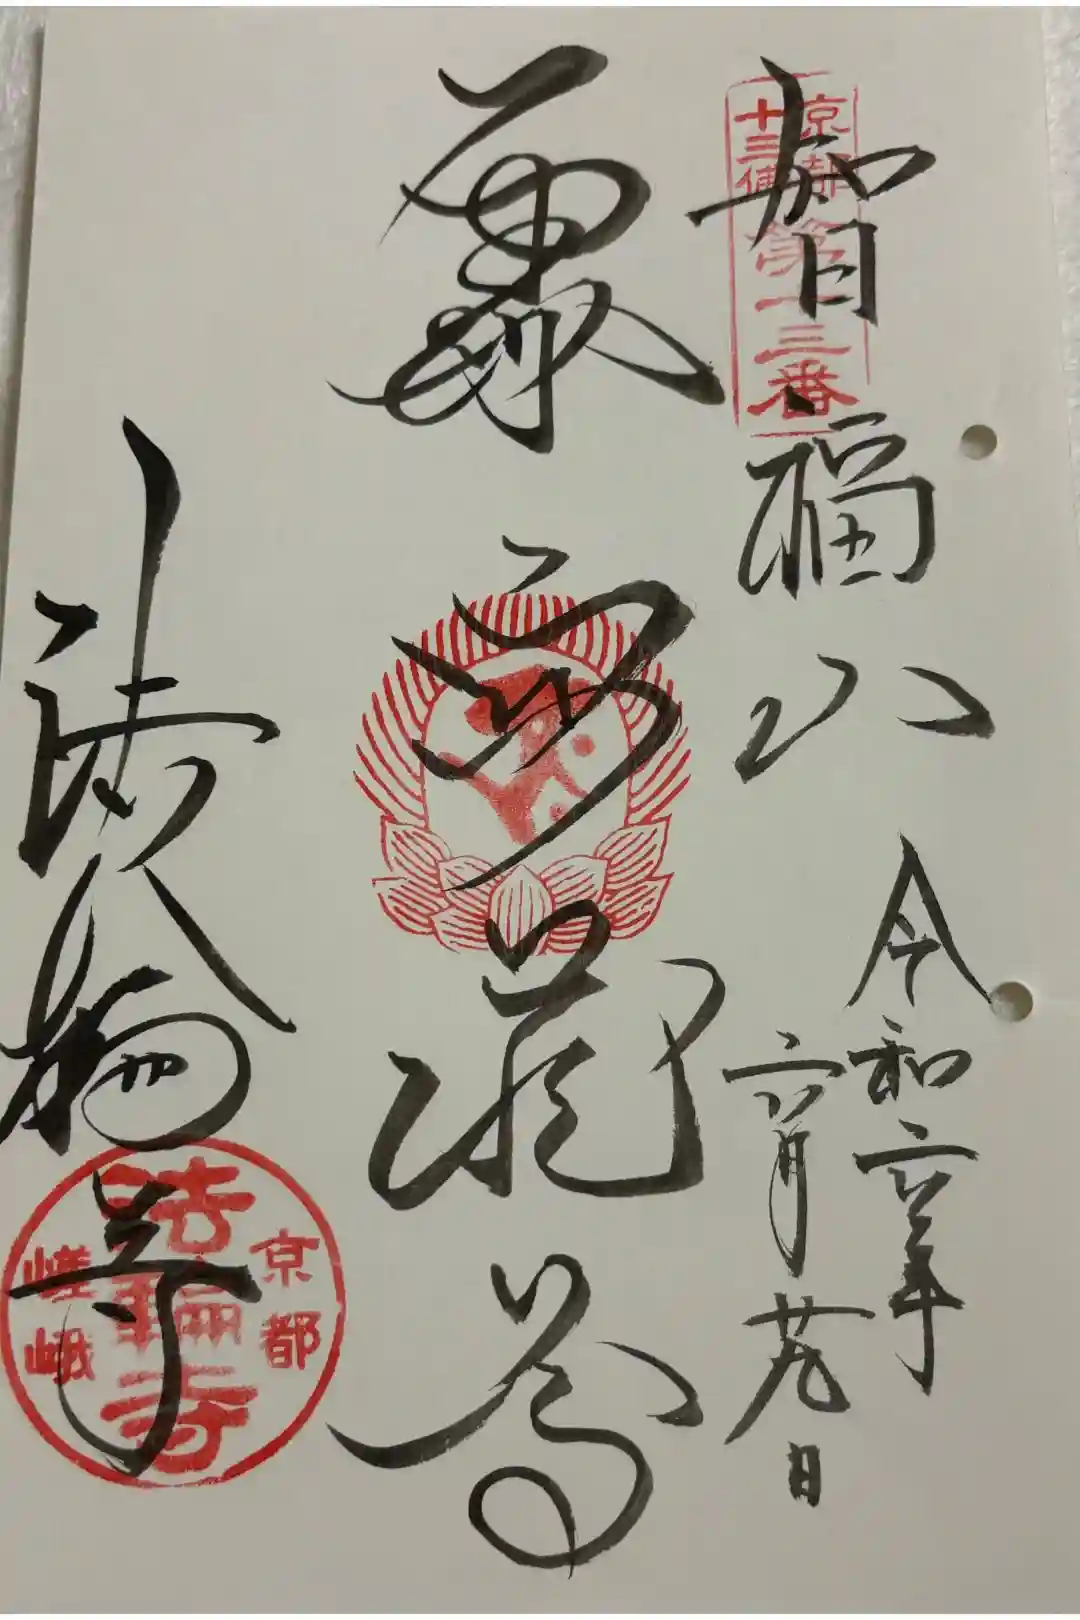 京都
十三佛
第十三番
智福山
令和六年
六月廿九日
虚空蔵尊
法輪寺
京都
法輪寺
嵯峨